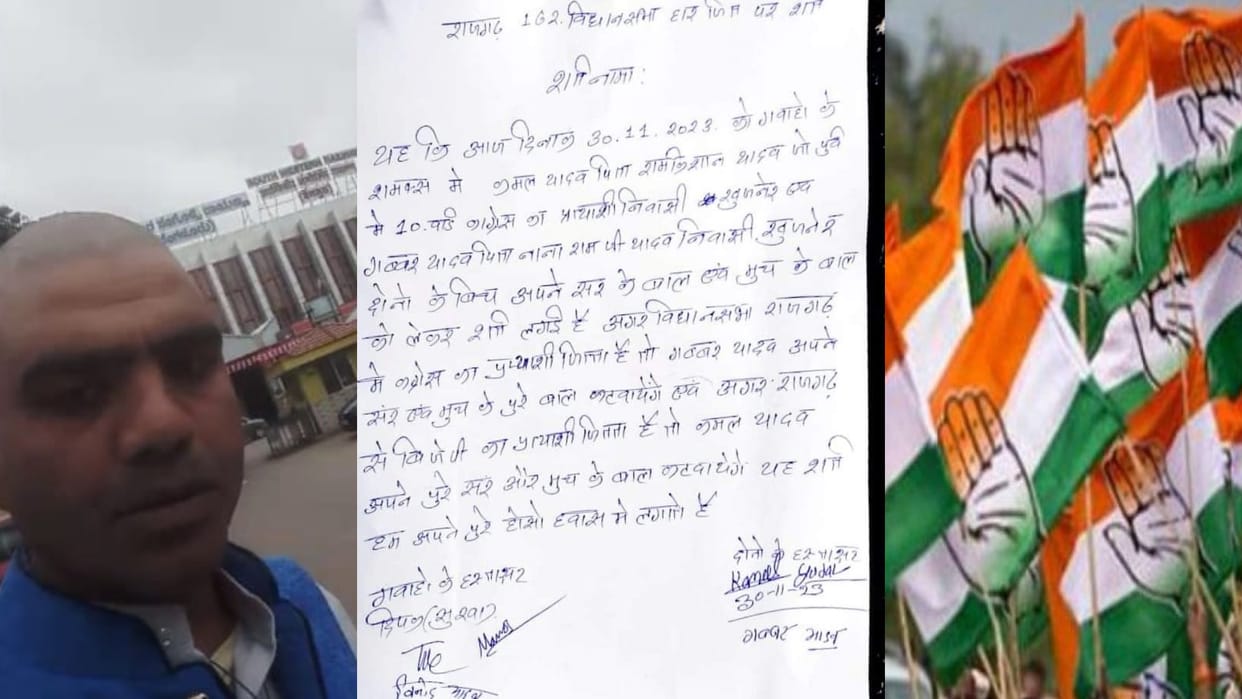 SOUTH WESTERN RAILWAY
राजगढ़ 162. विधानसभा हार जित पर शर्त
शर्तनामा :
यह कि आज दिनाक 30.11.2023. को गवाहो के
शमक्स मे कमल यादव पिता रामकिशान यादव जो पुर्व
मे 10. वार्ड काग्रेस का प्रत्याशी निवासी खुजनेर एवं
गब्बर यादव पिता नाना राम जी यादव निवासी खुजनेर
दोनो के बिच अपने सर के बाल एवं मुच के बाल
को लेकर शर्त लगाई है अगर विधानसभा राजगढ़
मे काग्रेस का प्रत्याशी जितता है तो गब्बर यादव अपने
सर एवं मुच के पुरे बाल कटवायेगे एवं अगर राजगढ़
से बिजेपी का प्रत्याशी जितता है तो कमल यादव
अपने पुरे सर और मुच के बाल कटवायेगे यह शर्त
हम अपने पुरे होसो हवास मे लगाते है
गवाहो के हस्ताक्षर
दिपक
Manoj
विनोद यादव
दोनो के हस्ताक्षर
Kamal Yadav
30-11-23
गब्बर यादव